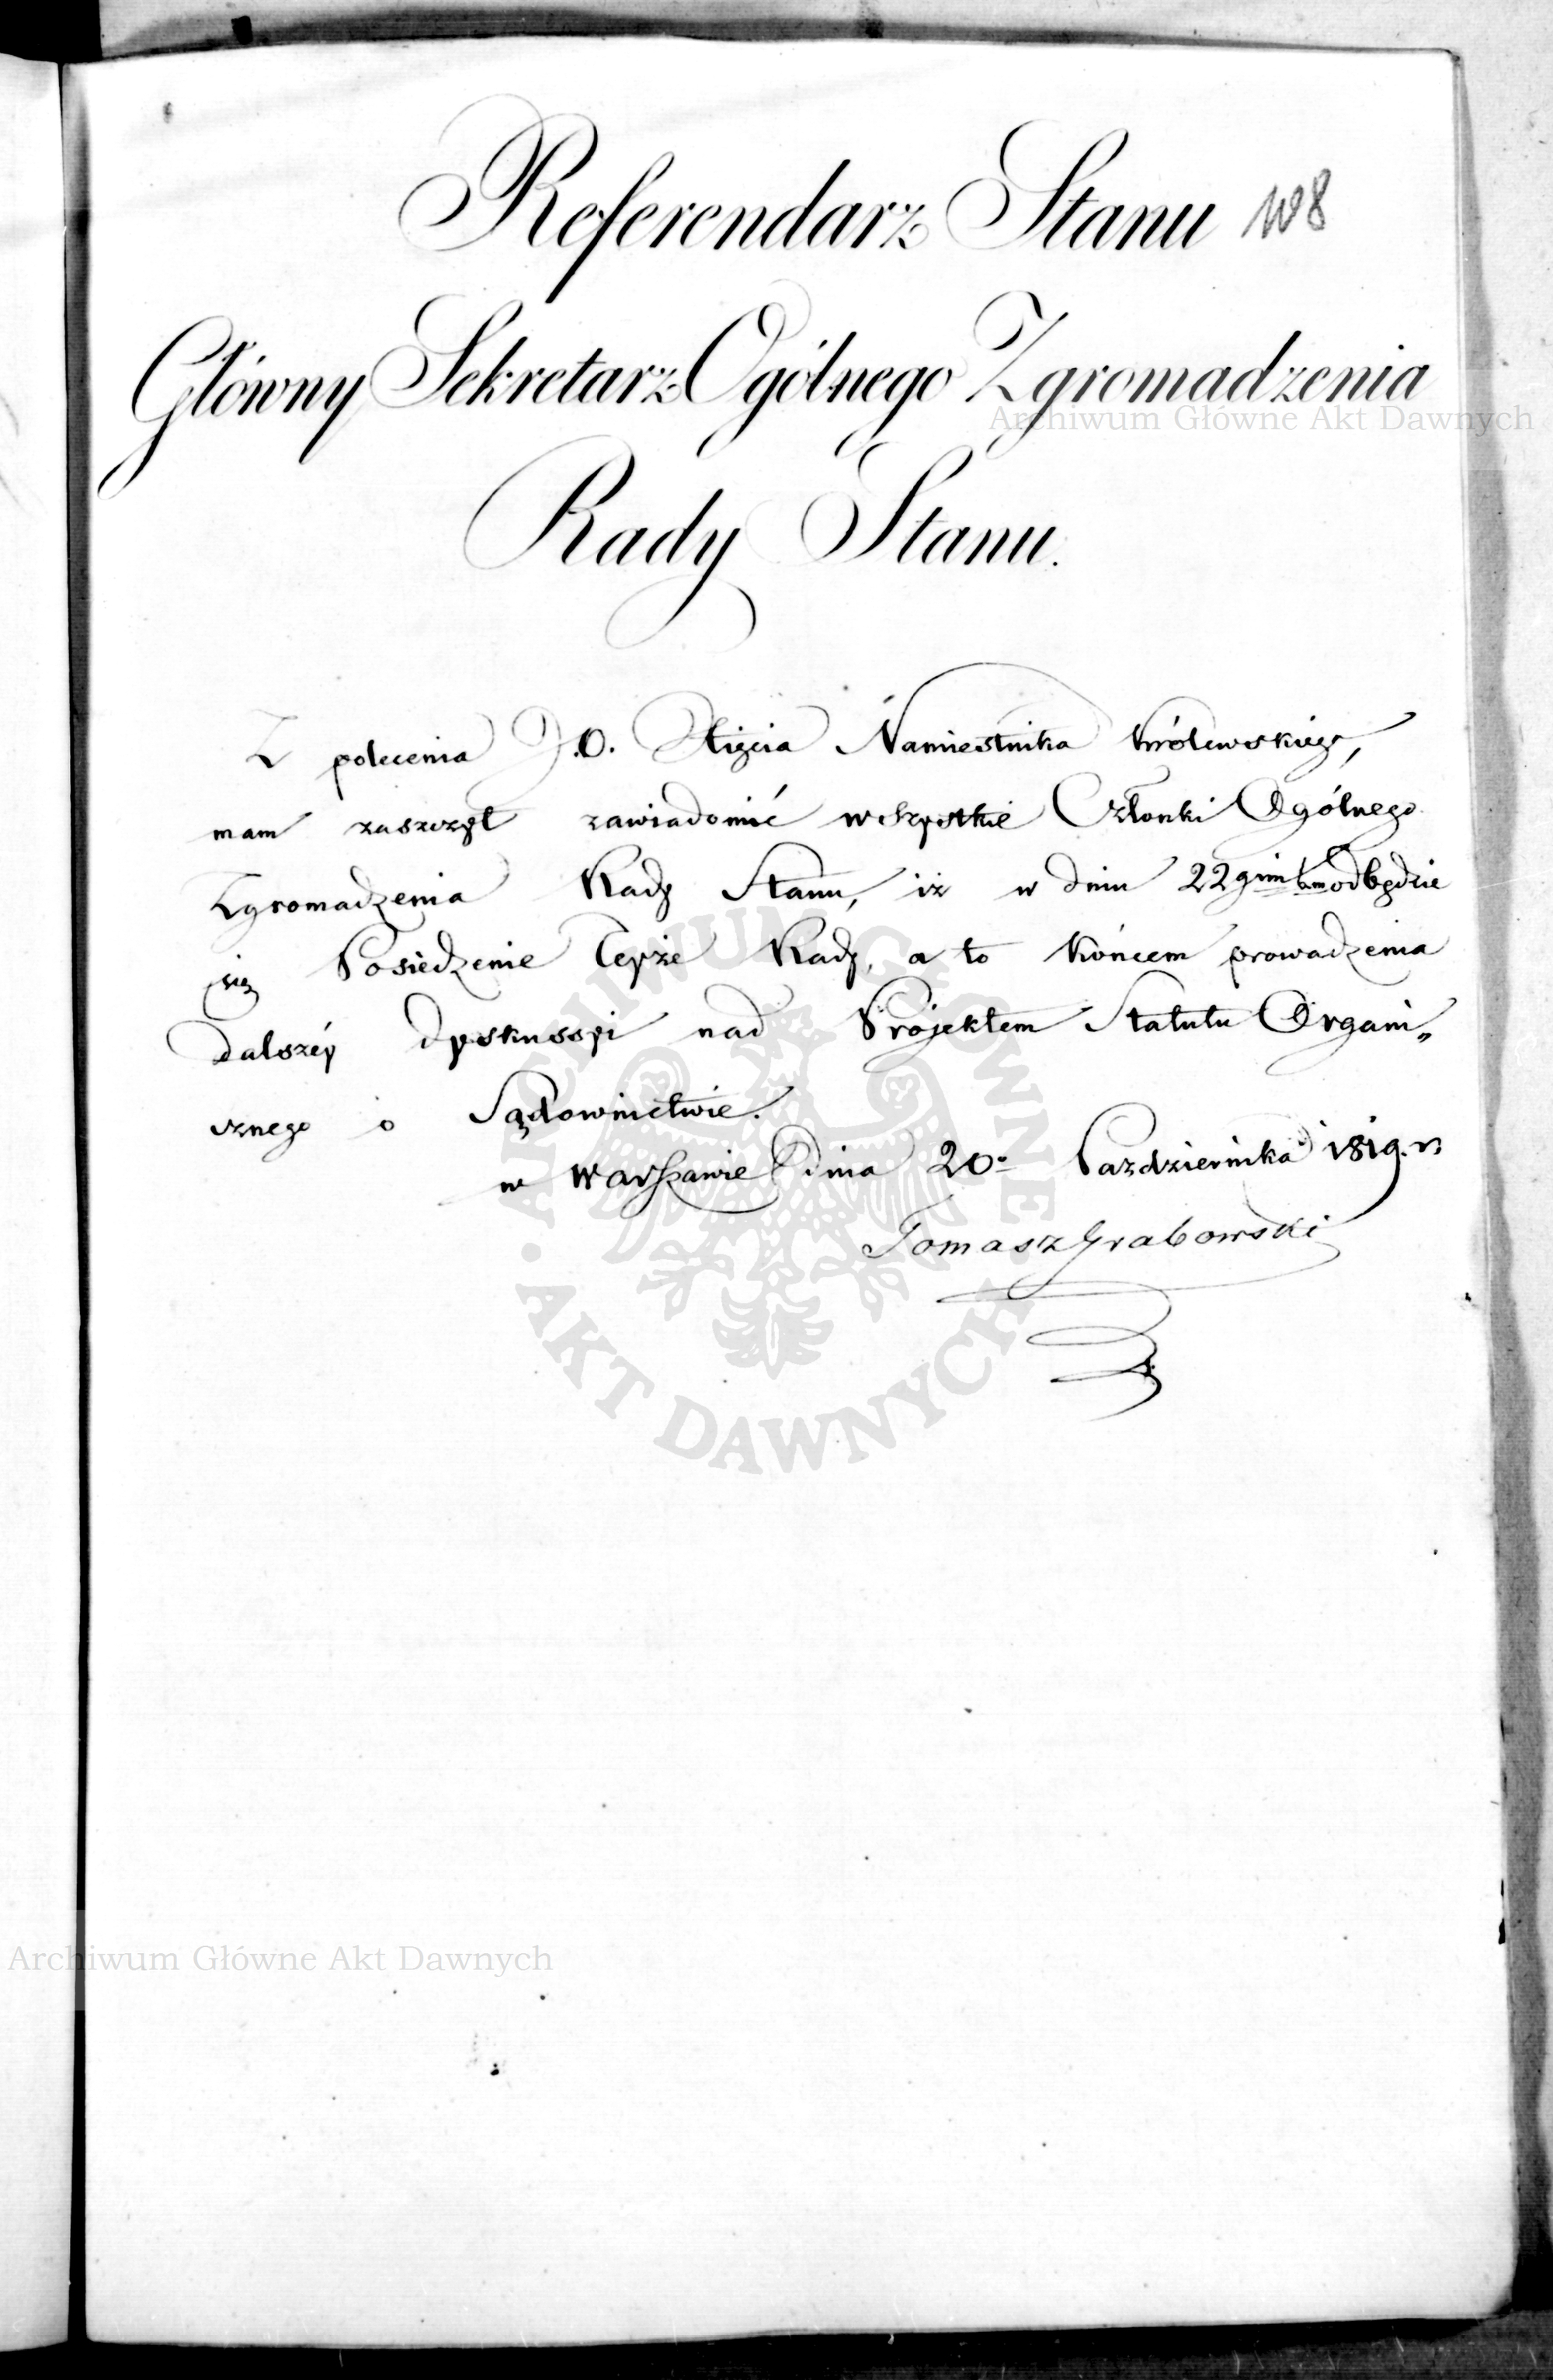 Referendarz Stanu 108
Główny Sekretarz Ogólnego Zgromadzenia
Archiwum Główne Akt Dawnych
Rady Stanu.
Z polecenia J.O. Xięcia Namiestnika Królewskiego,
mam zaszczyt zawiadomić wszystkie Członki Ogólnego
Zgromadzenia Rady Stanu, iż w dniu 22gim bm odbędzie
się Posiedzenie Teyże Rady, a to końcem prowadzenia
dalszéy dyskussyi nad Projektem Statutu Organi„
cznego o Sądownictwie.
w Warszawie dnia 20. Pazdziernika 1819. r.
Tomasz Grabowski
ARCHIWUM GŁÓWNE • AKT DAWNYCH •
Archiwum Główne Akt Dawnych